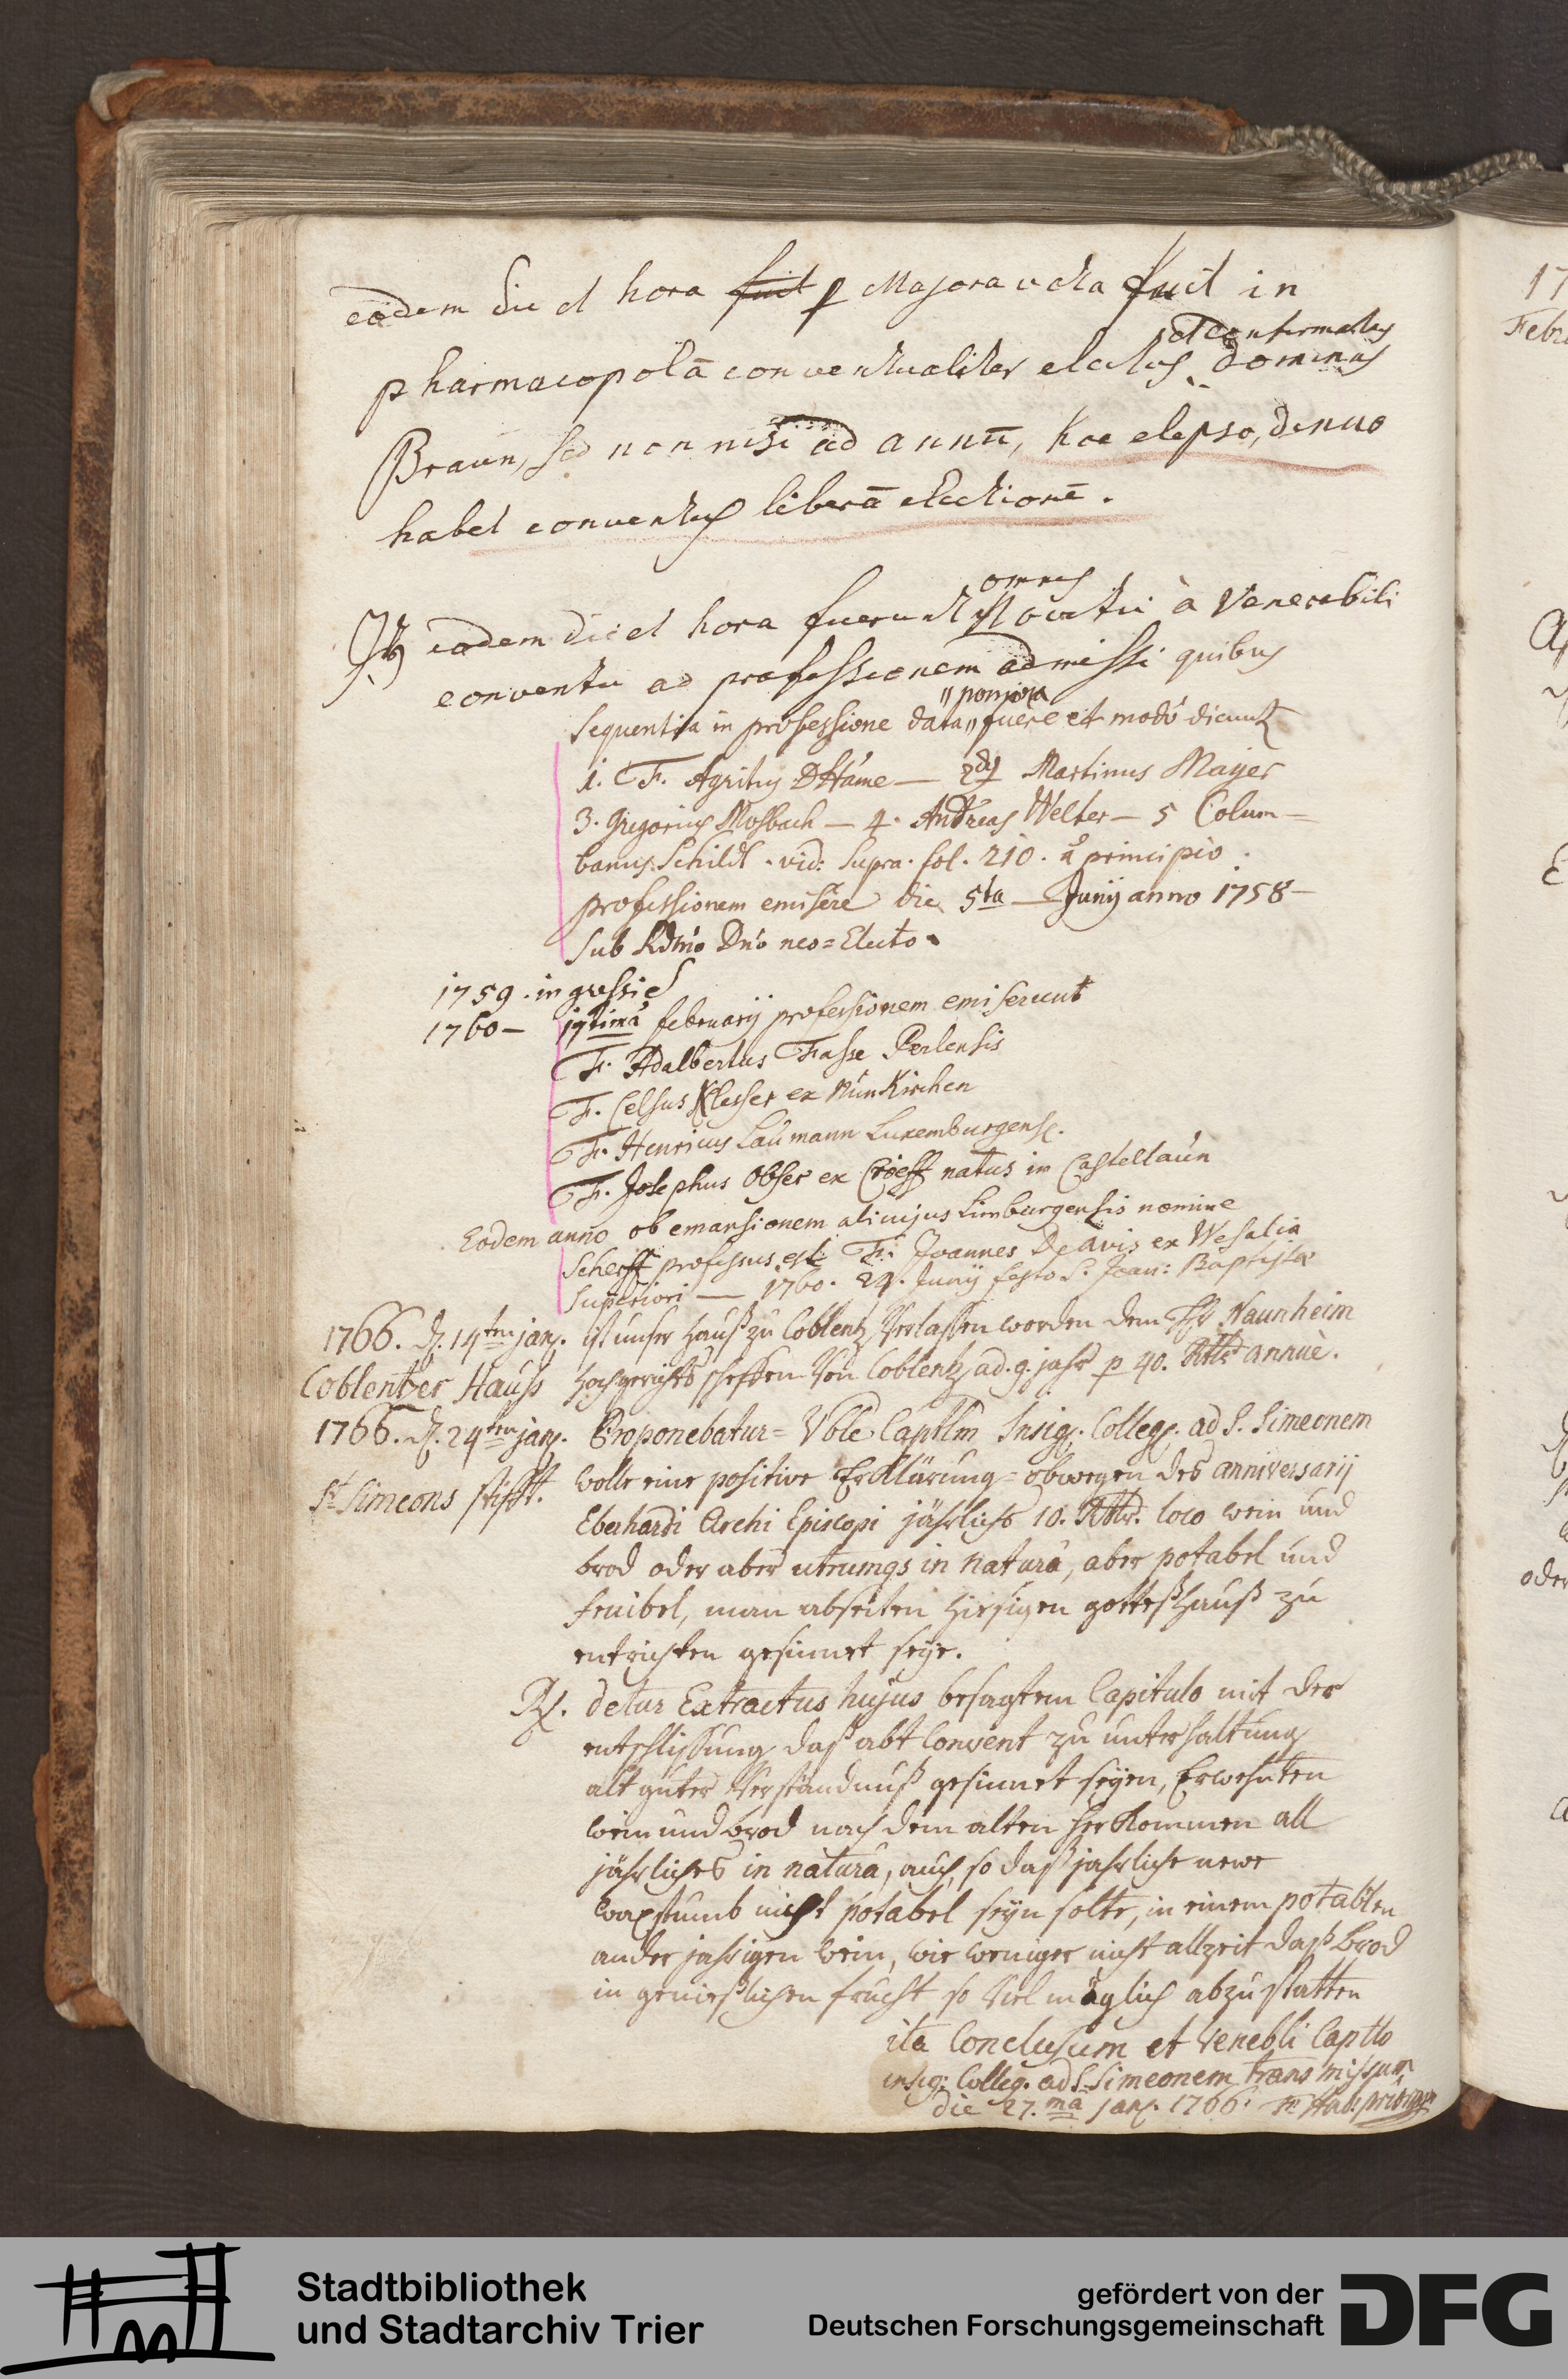 eodem die et hora fuit p Majora vota fuit in
et confirmatus
pharmacopolā conventualiter electus dominus
Braun, sed non nisi ad annū, hoc elapso, denuo
habet conventus liberā electionē.
omnes
Itē eodem die et hora fuerunt Novitii à Venerabili
conventu ad professionem admissi quibus
"nomina
sequentia in professione data" fuere et modò dicunt
1. F. Agritius DHáme — 2dus Martinus Mayer
3. Gregorius Mosbach — 4. Andreas Welter — 5 Colum=
banus Schildt. vid: supra. fol. 210. à principio.
professionem emisere die 5ta — Junij anno 1758 —
sub Rdmo Dno neo=Electo.
1759. ingressi
1760 — 17timâ februarij professionem emiserunt
F. Adalbertus Fasse Perlensis
F. Celsus Klesser ex Nünkirchen
F. Henricus Laumann Luxemburgens.
F. Josephus Obser ex Croeff natus in Castellaún
Eodem anno ob emansionem alicujus Limburgensis nomine
Scherff professus est F. Joannes De avis ex Wesalia
superiori — 1760. 24. Junij festo S. Joan: Baptistæ
1766. d. 14ten jan. ist unser Hauß zu Coblentz Verlassen worden dem Hr Naunheim
Coblentzer Hauß Hochgerichts scheffen Von Coblentz ad. 9. jahr p 40. Rthlr annuè.
1766. d. 24ten jan. Proponebatur= Vble Captlm Insig. Colleg. ad S. Simeonem
St Simeons stifft. wolle eine positive Erklärung= obwegen des anniversarij
Eberhardi Archi Episcopi jährlichs 10. Rthlr. loco wein und
brod oder aber utrumqs in naturâ, aber potabel und
fruibel, man abseiten hiesigen gotteßhauß zu
entrichten gesinnet seye.
Rs. detur Extractus hujus besagtem Capitulo mit der
entschlissung daß abt Convent zu unterhaltung
alt guter Verständnuß gesinnet seyen, Erwehnten
wein und brod nach dem alten herkommen all
jährliches in naturâ, auch, so daß jahrliche newe
waxstumb nicht potabel seyn solte, in einem potablen
ander jahrigen wein, wie weniger nicht allzeit daß brod
in genießlichen frucht so viel möglich abzustatten
ita Conclusum et Venebli Captlo
insig: Colleg. ad S. Simeonem transmissum
die 27.ma jan. 1766.
17
Febr
oder
Stadtbibliothek
und Stadtarchiv Trier
gefördert von der
Deutschen Forschungsgemeinschaft
DFG